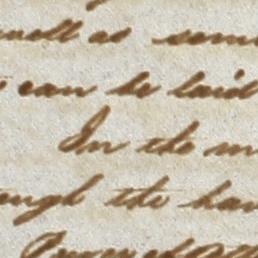 well as some
can be laid
In the m
ough the han